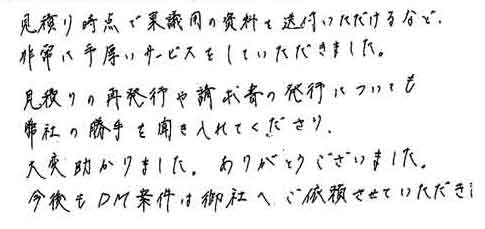 見積り時点で稟議用の資料を送付いただけるなど、
非常に手厚いサービスをしていただきました。
見積りの再発行や請求書の発行についても
弊社の勝手を聞き入れてくださり、
大変助かりました。ありがとうございました。
今後もDM案件は御社へご依頼させていただき